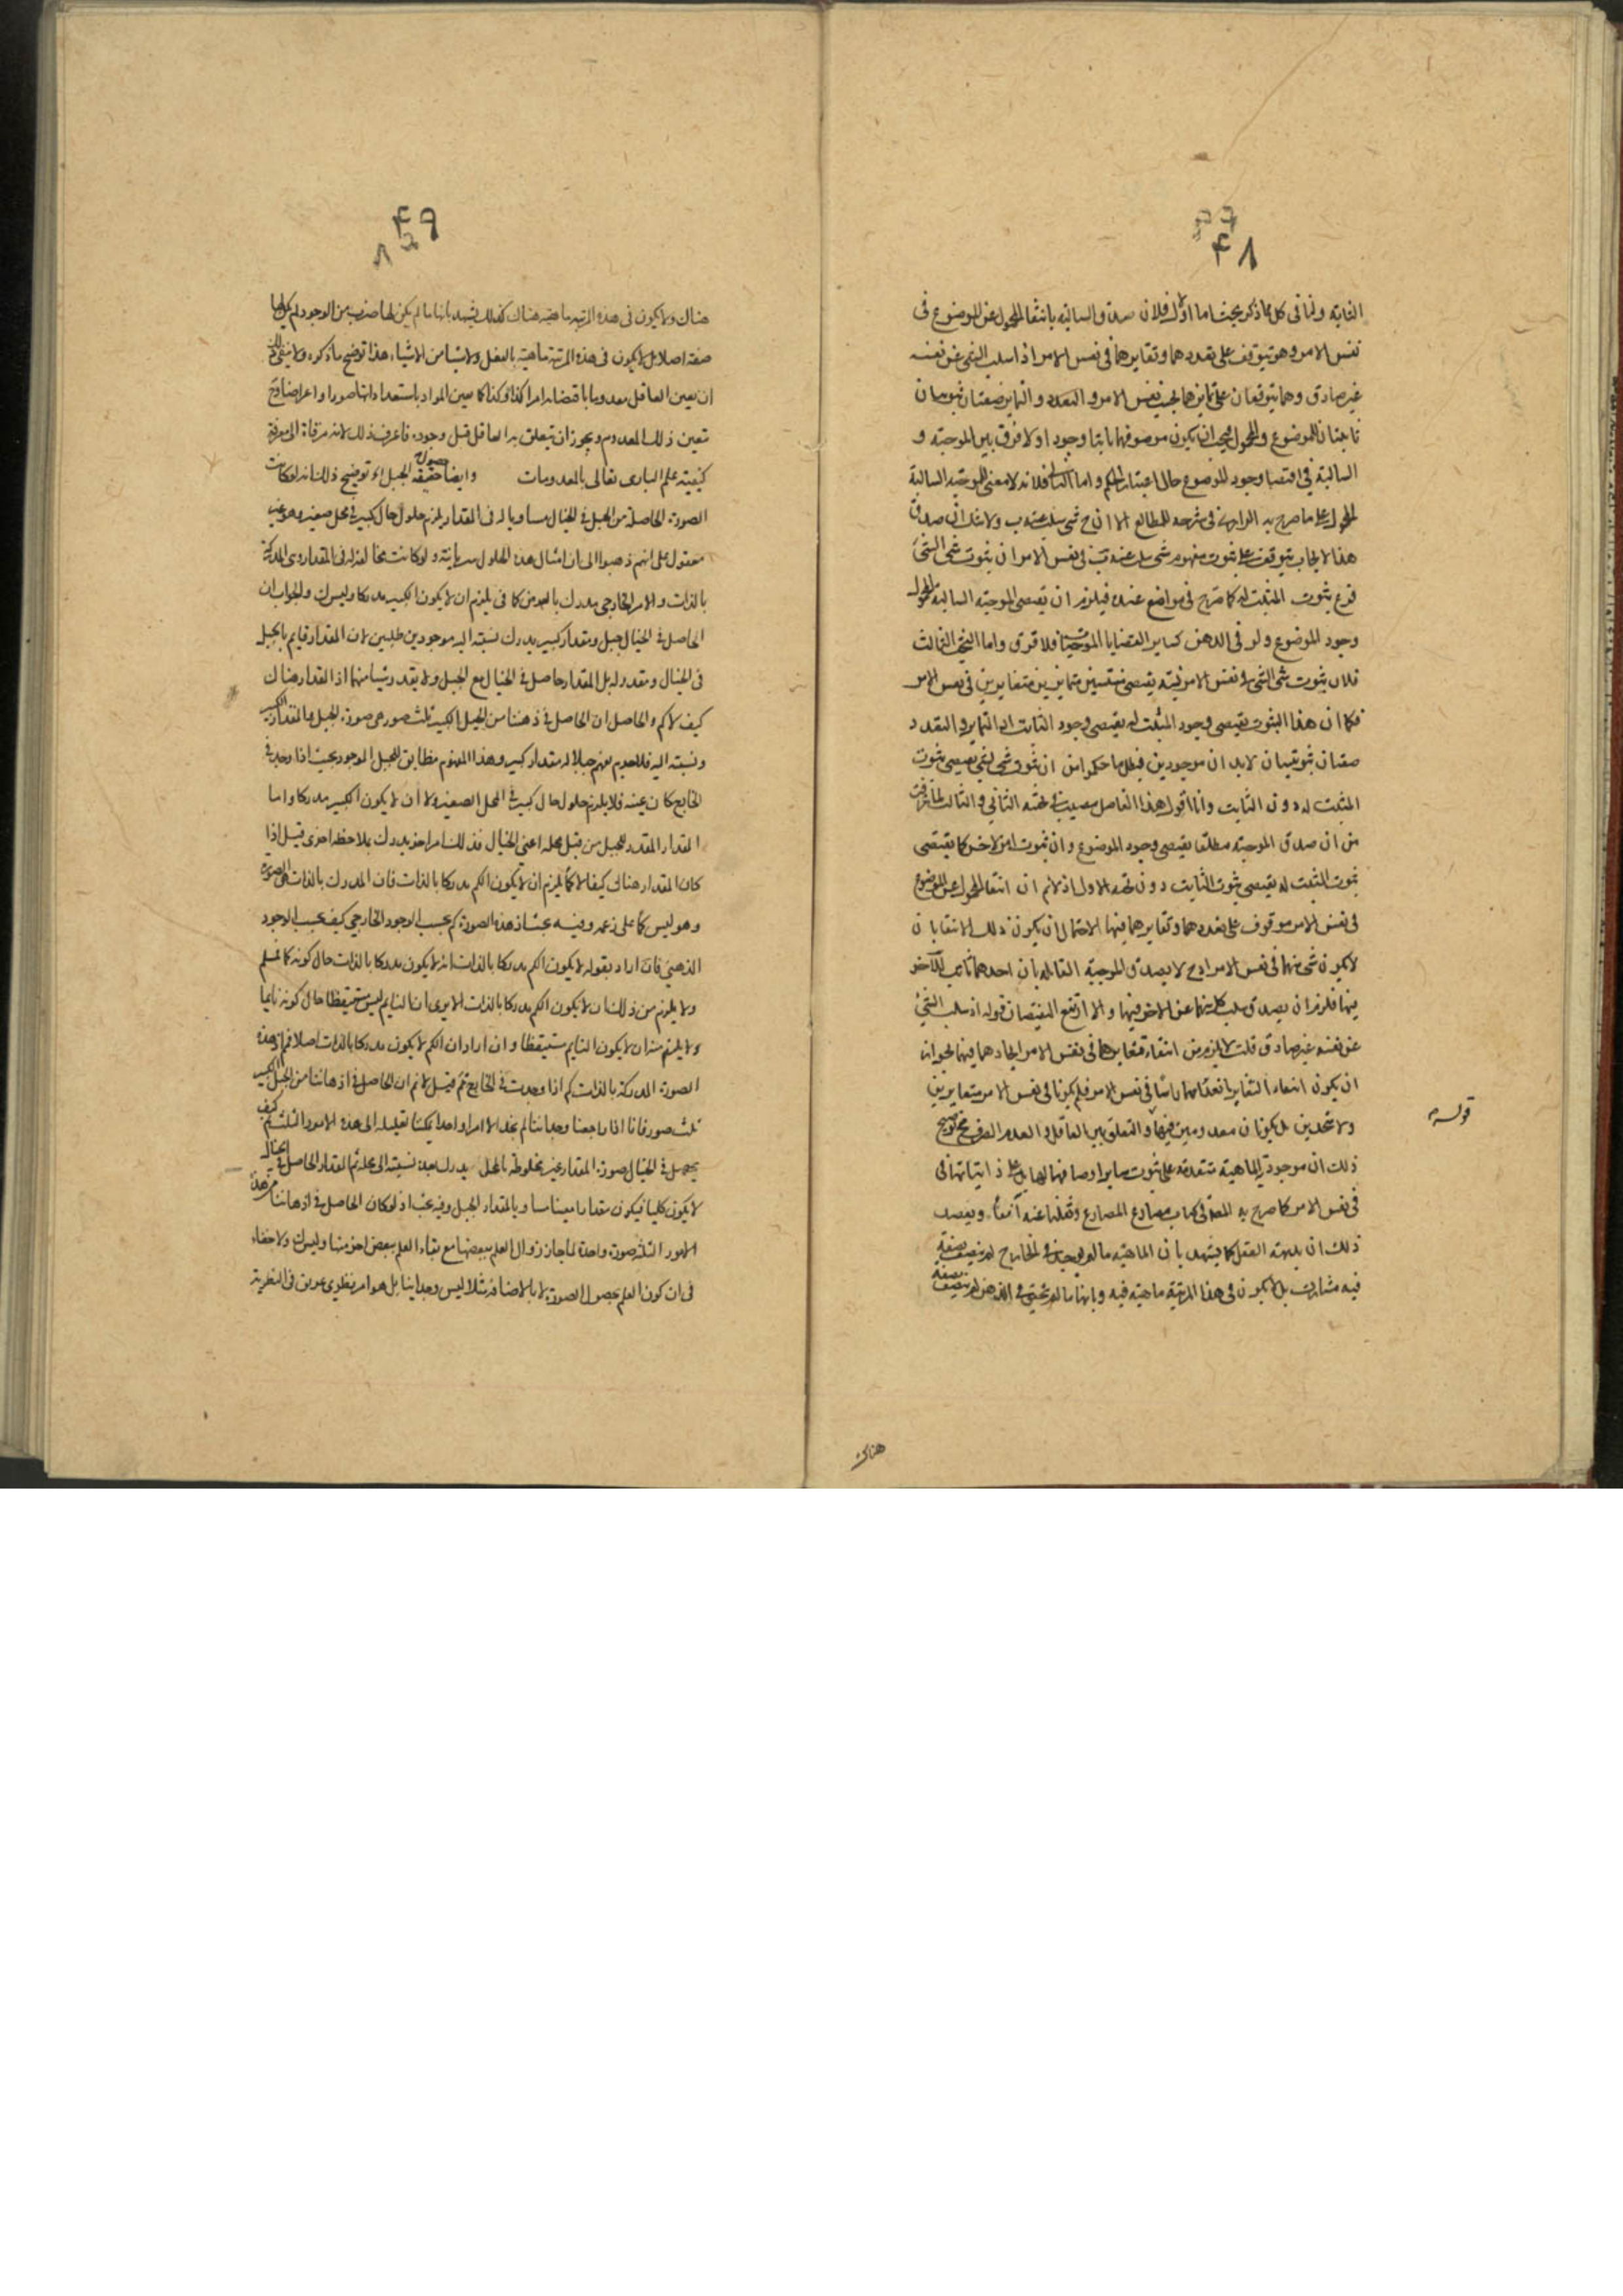 ۴۸
الغاية ولنا فى كل مما ذكر بحث اما الاول فلان صدق السالبة بانتفا المحمول عن الموضوع فى
نفس الامر وهو يتوقف على تعددهما وتغايرهما فى نفس الامر اذ سلب الشى عن نفسه
غير صادق وهما يتوقفان على تمايزهما بحسب نفس الامر و التعدد و التمايز صفتان ثبوتيان
ثابتتان للموضوع والمحمول فيجب ان يكون موصوفهما ثابتا وجودا ولا فرق بين الموجبة و
السالبة فى اقتضا وجود الموضوع حال اعتبار الحكم و اما الثانى فلانه لا معنى للموجبة السالبة
المحمول على ما صرح به الرازى فى شرحه للمطالع الا ان ج شى سلب عنه ب ولا شك ان صدق
هذا الايجاب يتوقف على ثبوت مفهوم شى سلب عنه ب فى نفس الامر ان ثبوت شى لشى
فرع ثبوت المثبت له كما صرح فى مواضع عنده فيلزم ان تقتضى الموجبة السالبة المحمول
وجود الموضوع ولو فى الذهن كساير القضايا الموجبة فلا فرق واما البحث الثالث
فلان ثبوت شى لشى فى نفس الامر يقتضى متمايزين متغايرين فى نفس الامر
فكما ان هذا الثبوت يقتضى وجود المثبت له يقتضى وجود الثابت اذ التمايز و التعدد
صفتان ثبوتيتان لابد ان موجودين فبطل ما حكموا من ان ثبوت شى لشى يقتضى ثبوت
المثبت له دون الثابت وانا اقول هذا الفاضل مصيب فى بحثه الثانى و الثالث لما عرفت
من ان صدق الموجبة مطلقا يقتضى وجود الموضوع وان ثبوت امر لاخر كما يقتضى
ثبوت المثبت له يقتضى ثبوت الثابت دون بحثه الاول اذ لانم ان انتفا المحمول عن الموضوع
فى نفس الامر موقوف على تعددهما وتغايرهما فيها لاحتمال ان يكون ذلك الانتفا بان
لا يكون شى منهما فى نفس الامر اذ ح لا يصدق الموجبة القايلة بان احدهما ثابت للآخر
فيها فلزم ان يصدق سلب كل منهما عن الاخر فيها والا ارتفع النقيضان قوله اذ سلب الشى
عن نفسه غير صادق قلت لا يلزم من انتفاء تغايرهما فى نفس الامر اتحادهما فيها لجواز
ان يكون انتفاء التغاير بانعدامهما راسا فى نفس الامر فلم يكونا فى نفس الامر متغايرين
ولا متحدين بل يكونان معدومين فيها و التعلق بين العاقل و العدم الصرف مح توضيح
ذلك ان موجودية الماهية متقدمة على ثبوت ساير اوصافها لها بل على ذاتياتها فى
فى نفس الامر كما صرح به المصنف فى كتاب مصارع المصارع ونقلنا عنه آنفا و يعضد
ذلك ان بديهة العقل كما يشهد بان الماهية ما لم يوجد فى الخارج لم يتصف بصفة
فيه مشاركة بل لا يكون فى هذا المرتبة ماهية فيه وبانها ما لم تتحقق فى الذهن لم يتصف بصفة
قوله
هناك
۴۹
هناك ولا يكون فى هذه المرتبة ماهية هناك كذلك يشهد بانها ما لم يكن لها ضرب من الوجود لم يكن لها
صفة اصلا بل لا يكون فى هذه المرتبة ماهية بالفعل ولا شيا من الاشياء هذا توضيح ما ذكره ولا يخفى
ان يعين العاقل معدوما باقتضائه امرا كذا وكذا كما يعين المواد باستعداداتها صورا و اعراضا و ح
تعين ذلك المعدوم ويجوز ان يتعلق به العاقل قبل وجوده فاعرف ذلك لانه مرقاة الى معرفة
كيفية علم البارى تعالى بالمعدومات وايضا حصول حقيقة الجبل اه توضيح ذلك انه لو كانت
الصورة الحاصلة من الجبل فى الخيال مساويا له فى المقدار يلزم حلول حال كبير فى محل صغير وهو غير
معقول على انهم ذهبوا الى ان امثال هذه الحلول سريانية ولو كانت مخالفة له فى المقدار وهى المدركة
بالذات والامر الخارجى مدرك بالعرض كما فى يلزم ان لا يكون الكبير مدركا وليس ك والجواب ان
الحاصل فى الخيال جبل ومقدار كبير يدرك نسبته اليه موجودين ظليين لان المقدار قايم بالجبل
فى الخيال ومقدر له بل المقدار حاصل فى الخيال مع الجبل ولا يقدر شيا منهما اذ المقدار هناك
كيف لا كم والحاصل ان الحاصل فى ذهننا من الجبل الكبير ثلث صور هى صورة الجبل والمقدار الكبير
ونسبته اليه فلا جرم نفهم جبلا له مقدار كبير وهذا المفهوم مطابق للجبل الموجود بحيث اذا وجد فى
الخارج كان عينه فلا يلزم حلول حال كبير فى المحل الصغير ولا ان لا يكون الكبير مدركا و اما
المقدار المقدر للجبل من قبل محله اعنى الخيال فذلك امر اخر يدرك بملاحظة اخرى قيل اذا
كان المقدار هناك كيفا لا كما يلزم ان لا يكون الكم مدركا بالذات فان المدرك بالذات هى الصورة
وهو ليس كما على زعمه وفيه بحث اذ هذه الصورة كم بحسب الوجود الخارجى كيف بحسب الوجود
الذهنى فان اراد بقوله لا يكون الكم مدركا بالذات انه لا يكون مدركا بالذات حال كونه كما فمسلم
ولا يلزم من ذلك ان لا يكون الكم مدركا بالذات الا يرى ان النايم ليس مستيقظا حال كونه نايما
ولا يلزم منه ان لا يكون النايم مستيقظا وان اراد ان الكم لا يكون مدركا بالذات اصلا فمم اذ هذه
الصورة المدركة بالذات كم اذا وجدت فى الخارج ثم قيل لا نم ان الحاصل فى اذهاننا من الجبل الكبير
ثلث صور فانا اذا راجعنا وجداننا لم نجد الا امرا واحدا يمكننا تحليله الى هذه الامور الثلثة ثم كيف
يحصل فى الخيال صورة المقدار غير مخلوطة بالمحل يدرك بعده نسبته الى محله ثم المقدار الحاصل فى الخيال
لا يكون كليا فيكون مقدارا معينا مساويا لمقدار الجبل وفيه بحث اذ لو كان الحاصل فى اذهاننا من هذه
الامور الثلثة صورة واحدة لما جاز زوال العلم ببعضها مع بقاء العلم ببعض اخر منها وليس ك ولا خفاء
فى ان كون العلم بحصول الصورة لا بالاضافة مثلا ليس وجدانيا بل هو امر نظرى عريق فى النظرية